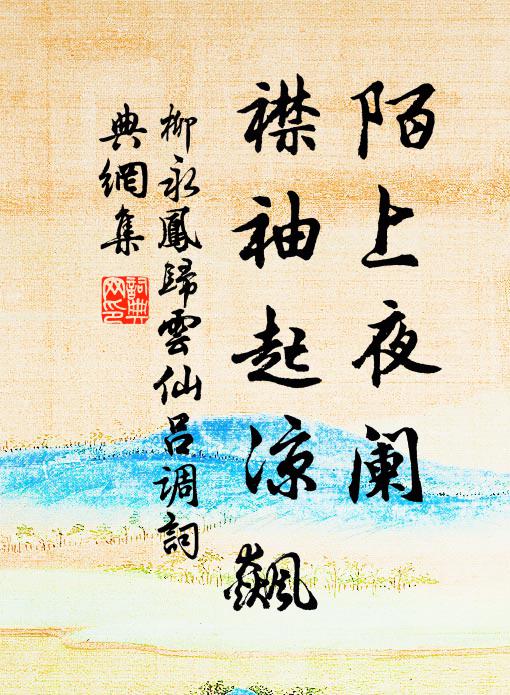 陌上夜阑
襟袖起凉飙
柳永鳳歸雲仙呂调詞
典網集
詞典网印